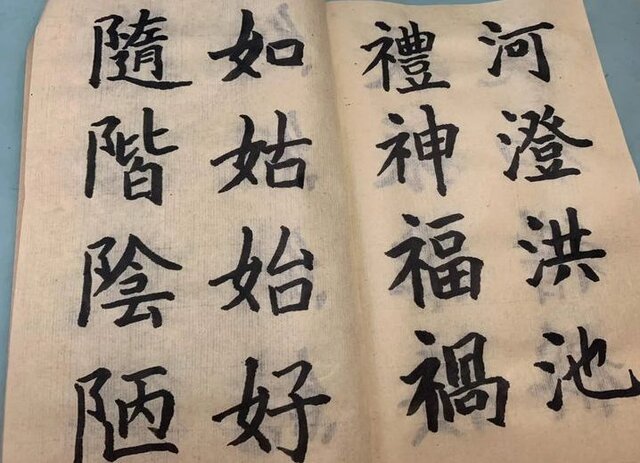 河澄洪池
禮神福禍
如姑始好
隨階陰陋